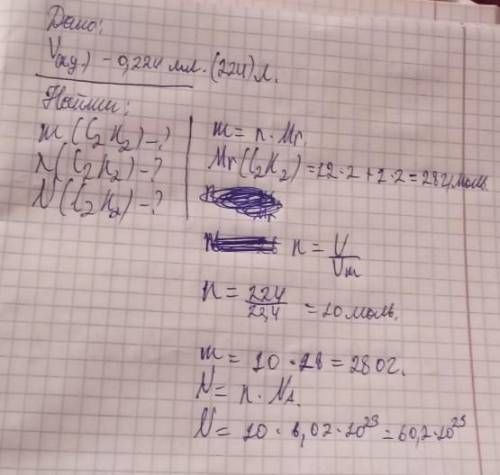 Дано:
V(н.у.) - 0,224 мл. (224) л.
Найти:
m (C₂H₂) - ?
n (C₂H₂) - ?
N (C₂H₂) - ?
m = n · Mr.
Mr(C₂H₂) = 12 · 2 + 2 · 2 = 28 г/моль.
n = V/Vm
n = 224/22,4 = 10 моль.
m = 10 · 28 = 280 г.
N = n · NA.
N = 10 · 6,02 · 10²³ = 60,2 · 10²³